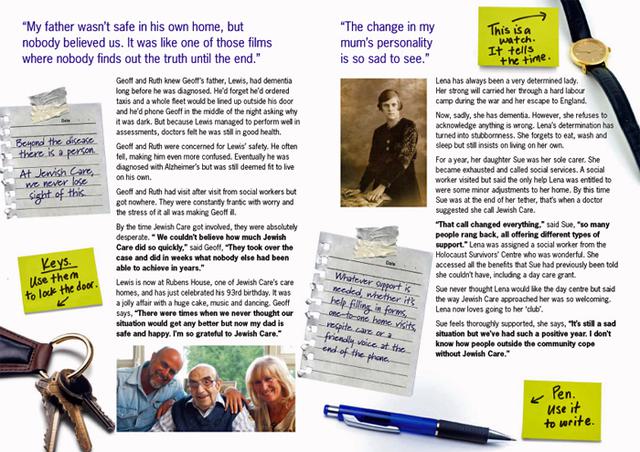 “My father wasn’t safe in his own home, but
nobody believed us. It was like one of those films
where nobody finds out the truth until the end.”
Geoff and Ruth knew Geoff’s father, Lewis, had dementia
long before he was diagnosed. He’d forget he’d ordered
taxis and a whole fleet would be lined up outside his door
and he’d phone Geoff in the middle of the night asking why
it was dark. But because Lewis managed to perform well in
assessments, doctors felt he was still in good health.
Geoff and Ruth were concerned for Lewis’ safety. He often
fell, making him even more confused. Eventually he was
diagnosed with Alzheimer’s but was still deemed fit to live
on his own.
Geoff and Ruth had visit after visit from social workers but
got nowhere. They were constantly frantic with worry and
the stress of it all was making Geoff ill.
By the time Jewish Care got involved, they were absolutely
desperate. “ We couldn’t believe how much Jewish
Care did so quickly,” said Geoff, “They took over the
case and did in weeks what nobody else had been
able to achieve in years.”
Lewis is now at Rubens House, one of Jewish Care’s care
homes, and has just celebrated his 93rd birthday. It was
a jolly affair with a huge cake, music and dancing. Geoff
says, “There were times when we never thought our
situation would get any better but now my dad is
safe and happy. I’m so grateful to Jewish Care.”
Date
Beyond the disease
there is a person.
At Jewish Care,
we never lose
sight of this.
Keys.
Use them
to lock the door.
“The change in my
mum’s personality
is so sad to see.”
This is a
watch.
It tells
the time.
Lena has always been a very determined lady.
Her strong will carried her through a hard labour
camp during the war and her escape to England.
Now, sadly, she has dementia. However, she refuses to
acknowledge anything is wrong. Lena’s determination has
turned into stubbornness. She forgets to eat, wash and
sleep but still insists on living on her own.
For a year, her daughter Sue was her sole carer. She
became exhausted and called social services. A social
worker visited but said the only help Lena was entitled to
were some minor adjustments to her home. By this time
Sue was at the end of her tether, that’s when a doctor
suggested she call Jewish Care.
“That call changed everything,” said Sue, “so many
people rang back, all offering different types of
support.” Lena was assigned a social worker from the
Holocaust Survivors’ Centre who was wonderful. She
accessed all the benefits that Sue had previously been told
she couldn’t have, including a day care grant.
Sue never thought Lena would like the day centre but said
the way Jewish Care approached her was so welcoming.
Lena now loves going to her ‘club’.
Sue feels thoroughly supported, she says, “It’s still a sad
situation but we’ve had such a positive year. I don’t
know how people outside the community cope
without Jewish Care.”
Date
Whatever support is
needed, whether it’s
help filling in forms,
one-to-one home visits,
respite care or a
friendly voice at the
end of the phone.
Pen.
Use it
to write.